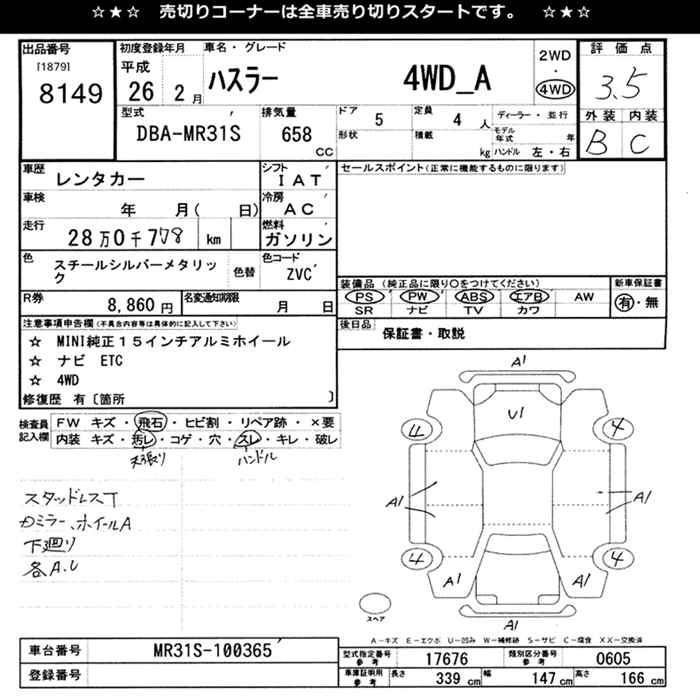 ☆★☆ 売切りコーナーは全車売り切りスタートです。 ☆★☆
出品番号
[1879]
8149
初度登録年月
平成
26 2 月
車名・グレード
ハスラー 4WD_A
2WD
・
4WD
評価点
3.5
外装 内装
B C
型式
DBA-MR31S
排気量
658
CC
ドア
5
形状
定員
4 人
積載
kg
ディーラー・並行
モデル年式 年
ハンドル 左・右
車歴
レンタカー
シフト
IAT
車検
年 月( 日)
冷房
AC
走行
28万0千778 km
燃料
ガソリン
色
スチールシルバーメタリック
色替
色コード
ZVC
R券
8,860円
名変通知期限
月 日
セールスポイント(正常に機能するものに限ります)
装備品(純正品に限り○をつけてください)
PS PW ABS エアB AW
SR ナビ TV カワ
新車保証書
有・無
後日品
保証書・取説
注意事項申告欄(不具合内容等は具体的に記入して下さい)
☆ MINI純正15インチアルミホイール
☆ ナビ ETC
☆ 4WD
修復歴 有〔箇所 〕
検査員記入欄
FW キズ・飛石・ヒビ割・リペア跡・×要
内装 キズ・汚レ・コゲ・穴・スレ・キレ・破レ
天張り
ハンドル
スタッドレスT
ミラー、ホイールA
下廻り
各A.U
A1
U1
4
4
A1
A1
4
4
A1
A1
A1
スペア
A-キズ E-エクボ U-凹み W-補修跡 S-サビ C-腐食 XX-交換済
車台番号
MR31S-100365
登録番号
型式指定番号 参考
17676
類別区分番号 参考
0605
車庫証明用 参考
長さ 339 cm
幅 147 cm
高さ 166 cm